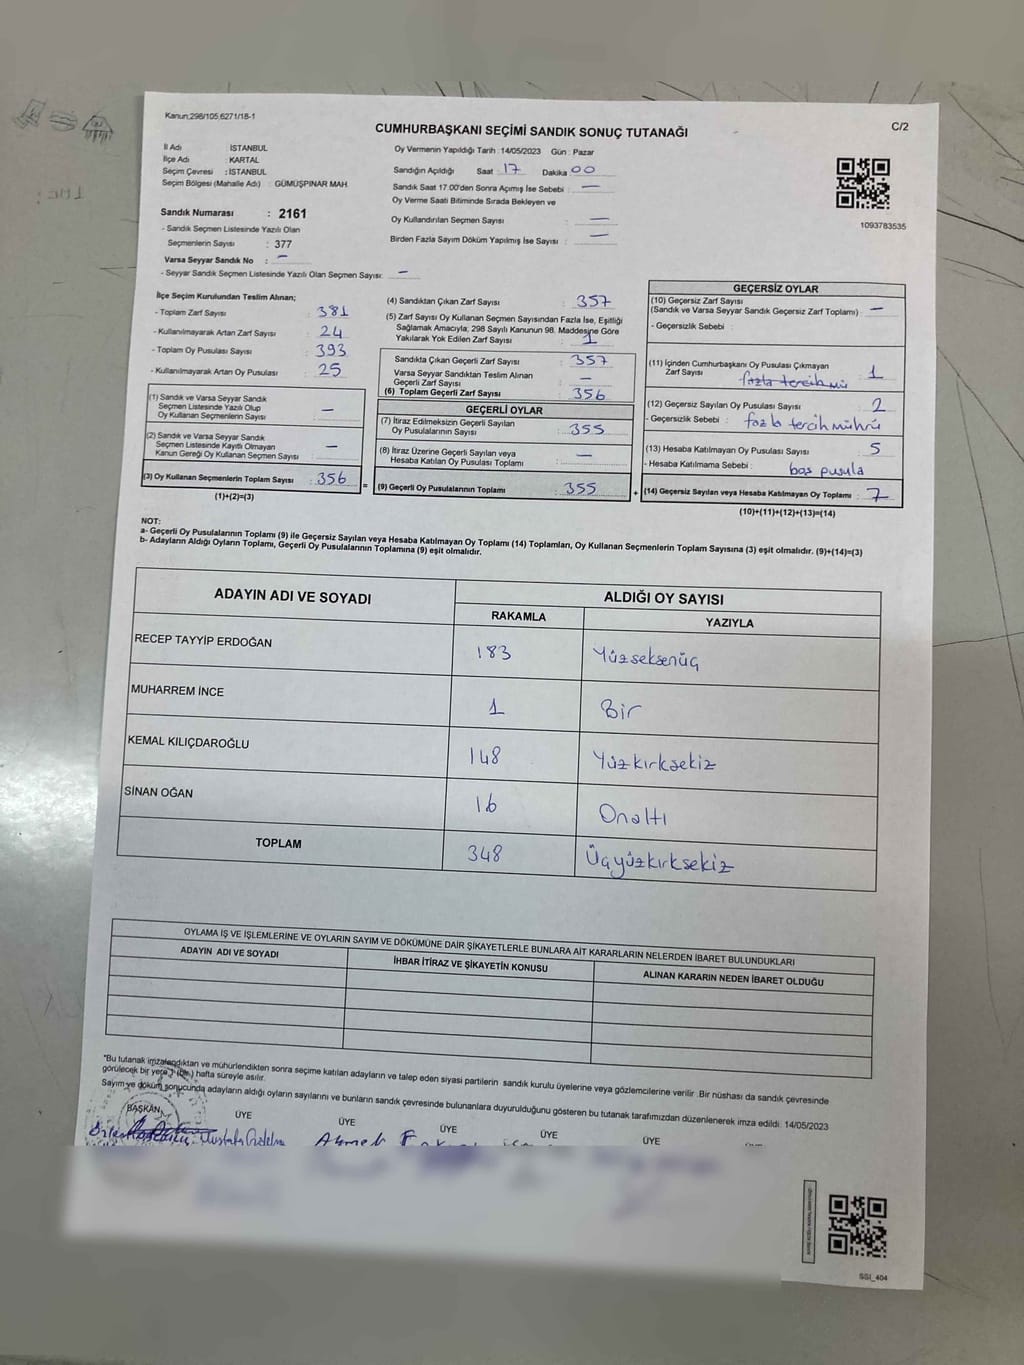 Kanun;298/105,6271/18-1
C/2
CUMHURBAŞKANI SEÇİMİ SANDIK SONUÇ TUTANAĞI
İl Adı : İSTANBUL
İlçe Adı : KARTAL
Seçim Çevresi : İSTANBUL
Seçim Bölgesi (Mahalle Adı) : GÜMÜŞPINAR MAH.
Sandık Numarası : 2161
- Sandık Seçmen Listesinde Yazılı Olan
Seçmenlerin Sayısı : 377
Varsa Seyyar Sandık No : —
- Seyyar Sandık Seçmen Listesinde Yazılı Olan Seçmen Sayısı: —
Oy Vermenin Yapıldığı Tarih : 14/05/2023 Gün : Pazar
Sandığın Açıldığı Saat 17 Dakika 00
Sandık Saat 17.00'den Sonra Açımış İse Sebebi : —
Oy Verme Saati Bitiminde Sırada Bekleyen ve
Oy Kullandırılan Seçmen Sayısı : —
Birden Fazla Sayım Döküm Yapılmış İse Sayısı : —
1093783535
İlçe Seçim Kurulundan Teslim Alınan;
- Toplam Zarf Sayısı : 381
- Kullanılmayarak Artan Zarf Sayısı : 24
- Toplam Oy Pusulası Sayısı : 393
- Kullanılmayarak Artan Oy Pusulası : 25
(1) Sandık ve Varsa Seyyar Sandık
Seçmen Listesinde Yazılı Olup
Oy Kullanan Seçmenlerin Sayısı : —
(2) Sandık ve Varsa Seyyar Sandık
Seçmen Listesinde Kayıtlı Olmayan
Kanun Gereği Oy Kullanan Seçmen Sayısı : —
(3) Oy Kullanan Seçmenlerin Toplam Sayısı : 356
(1)+(2)=(3)
=
(4) Sandıktan Çıkan Zarf Sayısı : 357
(5) Zarf Sayısı Oy Kullanan Seçmen Sayısından Fazla İse, Eşitliği
Sağlamak Amacıyla; 298 Sayılı Kanunun 98. Maddesine Göre
Yakılarak Yok Edilen Zarf Sayısı : 1
Sandıkta Çıkan Geçerli Zarf Sayısı : 357
Varsa Seyyar Sandıktan Teslim Alınan
Geçerli Zarf Sayısı : —
(6) Toplam Geçerli Zarf Sayısı : 356
GEÇERLİ OYLAR
(7) İtiraz Edilmeksizin Geçerli Sayılan
Oy Pusulalarının Sayısı : 355
(8) İtiraz Üzerine Geçerli Sayılan veya
Hesaba Katılan Oy Pusulası Toplamı : —
(9) Geçerli Oy Pusulalarının Toplamı : 355
+
GEÇERSİZ OYLAR
(10) Geçersiz Zarf Sayısı
(Sandık ve Varsa Seyyar Sandık Geçersiz Zarf Toplamı) : —
- Geçersizlik Sebebi :
(11) İçinden Cumhurbaşkanı Oy Pusulası Çıkmayan
Zarf Sayısı : 1
fazla tercih mü
(12) Geçersiz Sayılan Oy Pusulası Sayısı : 2
- Geçersizlik Sebebi : fazla tercih mührü
(13) Hesaba Katılmayan Oy Pusulası Sayısı : 5
- Hesaba Katılmama Sebebi : boş pusula
(14) Geçersiz Sayılan veya Hesaba Katılmayan Oy Toplamı : 7
(10)+(11)+(12)+(13)=(14)
NOT:
a- Geçerli Oy Pusulalarının Toplamı (9) ile Geçersiz Sayılan veya Hesaba Katılmayan Oy Toplamı (14) Toplamları, Oy Kullanan Seçmenlerin Toplam Sayısına (3) eşit olmalıdır. (9)+(14)=(3)
b- Adayların Aldığı Oyların Toplamı, Geçerli Oy Pusulalarının Toplamına (9) eşit olmalıdır.
ADAYIN ADI VE SOYADI
ALDIĞI OY SAYISI
RAKAMLA YAZIYLA
RECEP TAYYİP ERDOĞAN 183 Yüzseksenüç
MUHARREM İNCE 1 Bir
KEMAL KILIÇDAROĞLU 148 Yüzkırksekiz
SİNAN OĞAN 16 Onaltı
TOPLAM 348 Üçyüzkırksekiz
OYLAMA İŞ VE İŞLEMLERİNE VE OYLARIN SAYIM VE DÖKÜMÜNE DAİR ŞİKAYETLERLE BUNLARA AİT KARARLARIN NELERDEN İBARET BULUNDUKLARI
ADAYIN ADI VE SOYADI İHBAR İTİRAZ VE ŞİKAYETİN KONUSU ALINAN KARARIN NEDEN İBARET OLDUĞU
*Bu tutanak imzalandıktan ve mühürlendikten sonra seçime katılan adayların ve talep eden siyasi partilerin sandık kurulu üyelerine veya gözlemcilerine verilir. Bir nüshası da sandık çevresinde
görülecek bir yere 1 (bir) hafta süreyle asılır.
Sayım ve döküm sonucunda adayların aldığı oyların sayılarını ve bunların sandık çevresinde bulunanlara duyurulduğunu gösteren bu tutanak tarafımızdan düzenlenerek imza edildi. 14/05/2023
BAŞKAN ÜYE ÜYE ÜYE ÜYE ÜYE
Mustafa Ahmet
SSI_404